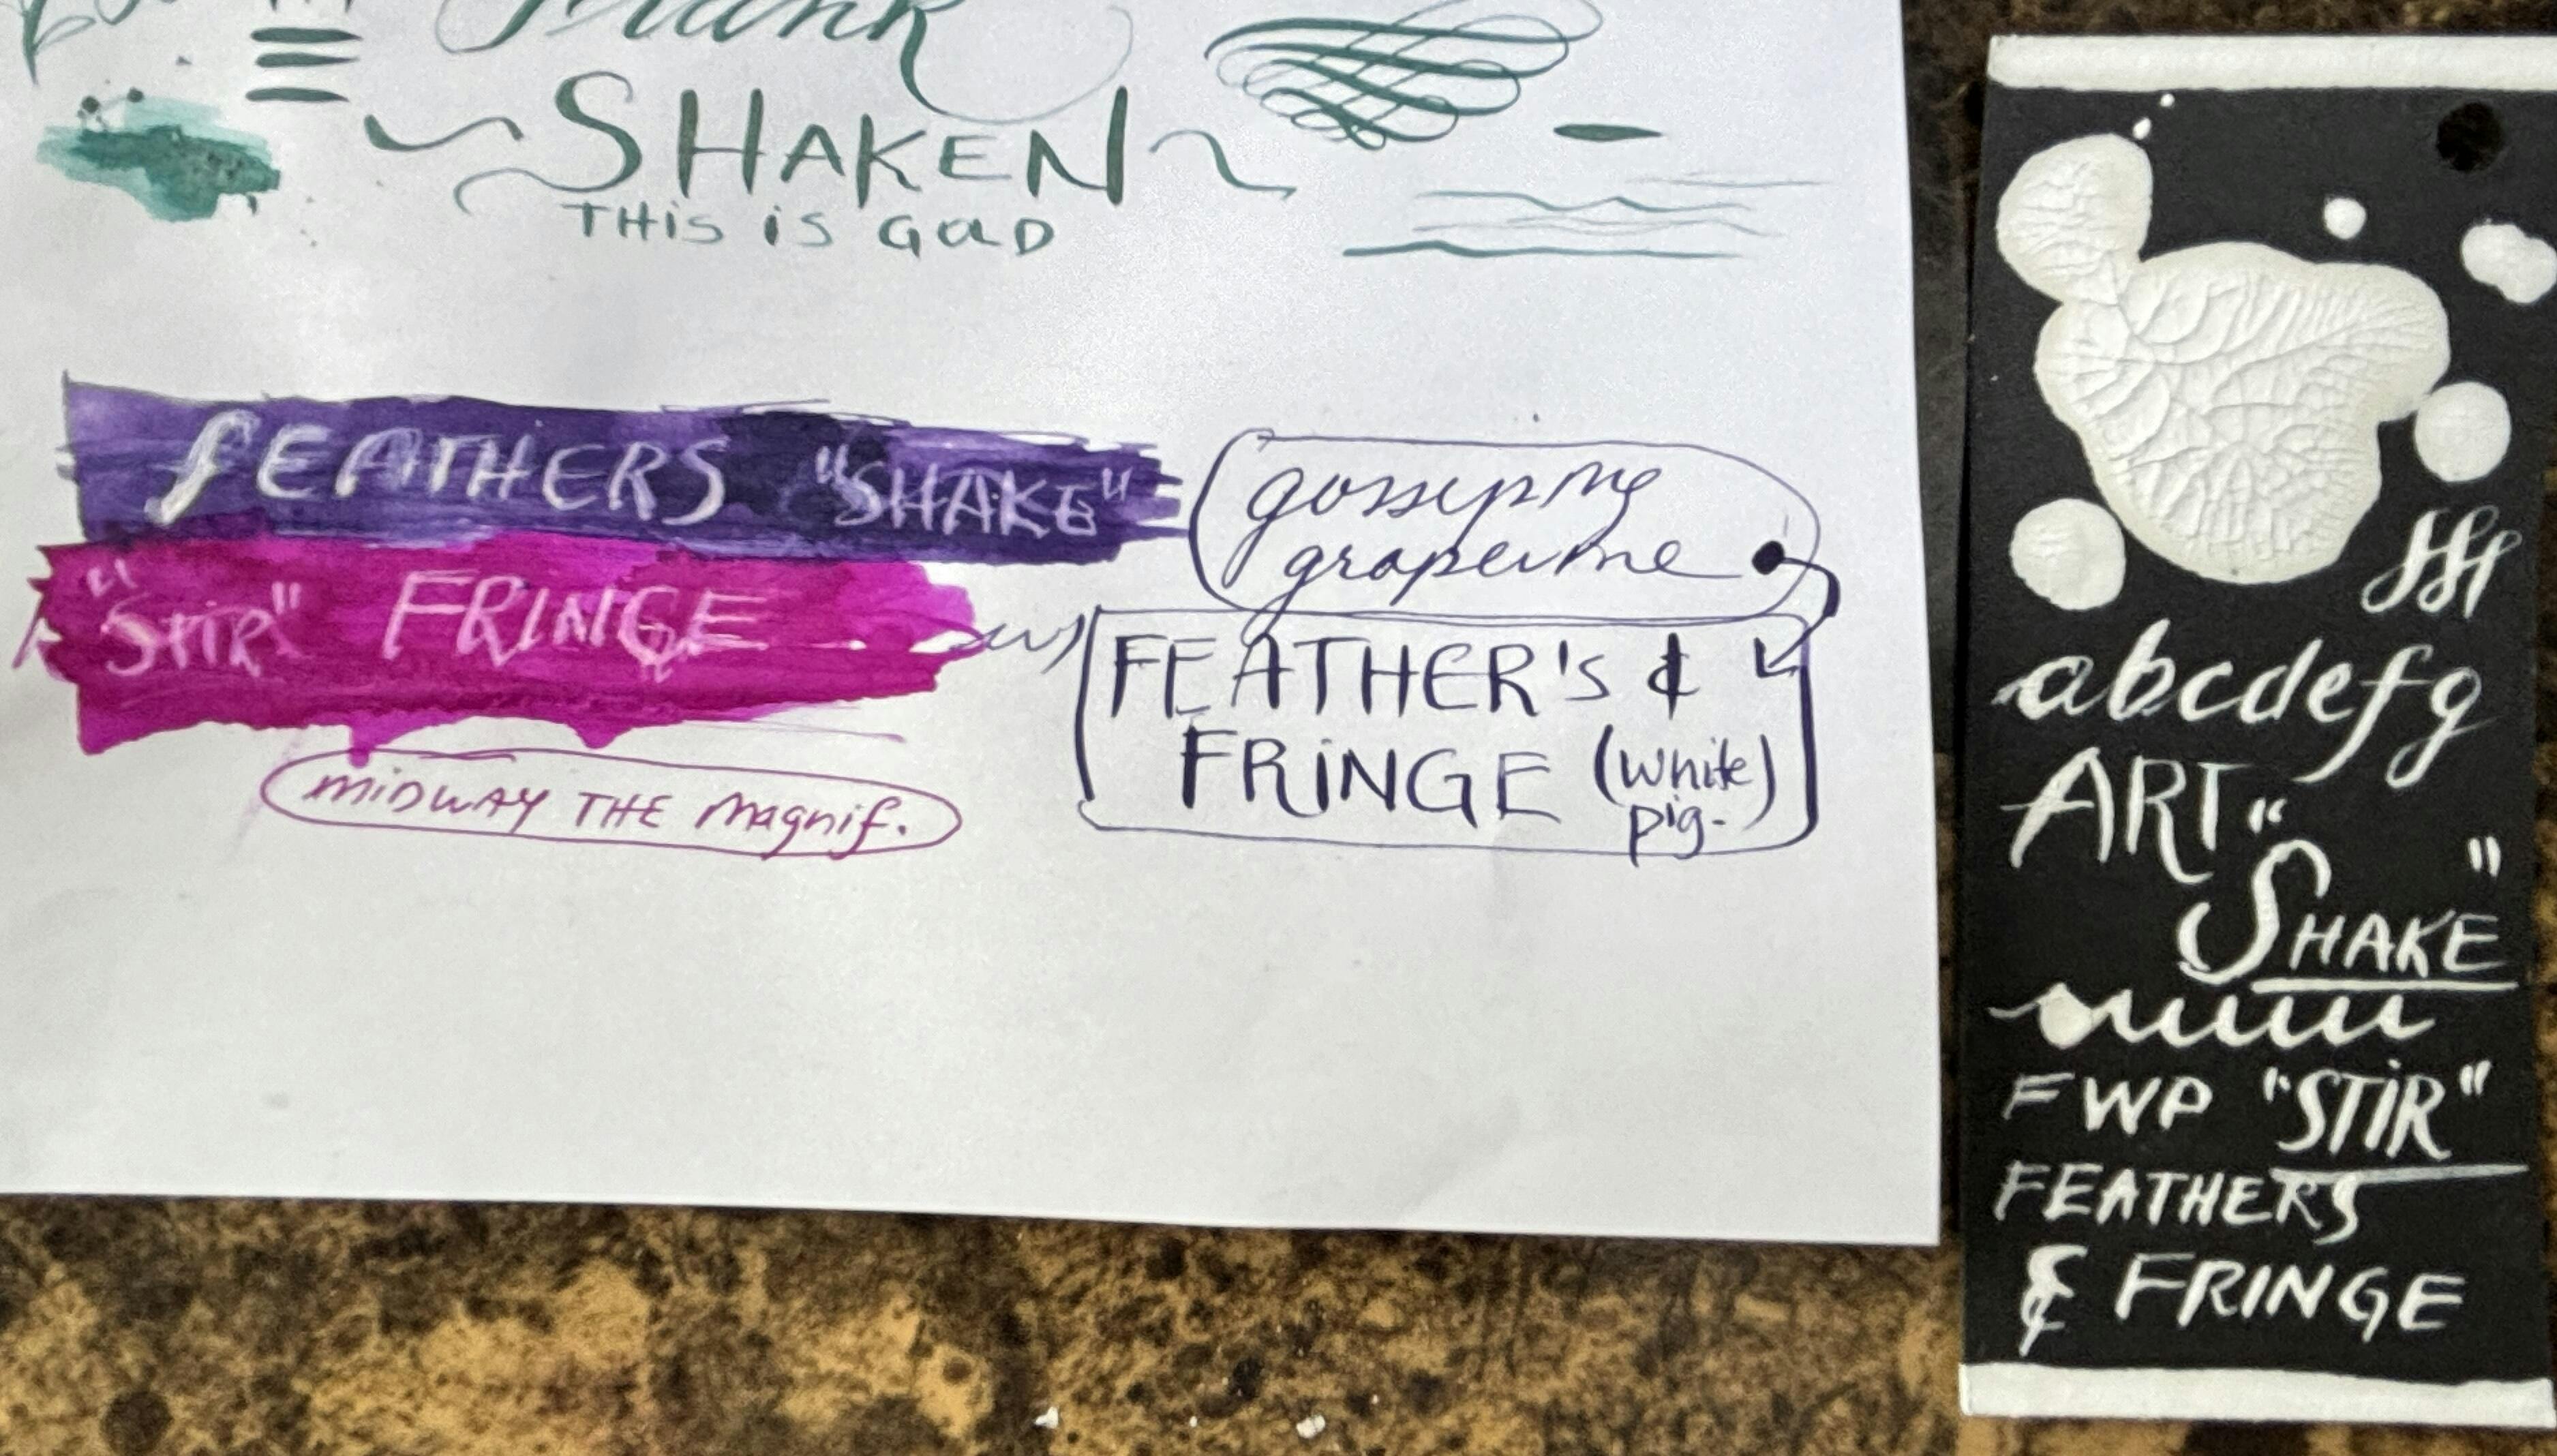 SHAKEN
THIS IS GOLD
FEATHERS "SHAKE"
"STIR" FRINGE
gossiping
grapevine
w/
FEATHER's &
FRINGE (white)
pig.
MIDWAY THE Magnif.
abcdefg
ART
"SHAKE"
FWP "STIR"
FEATHERS
& FRINGE